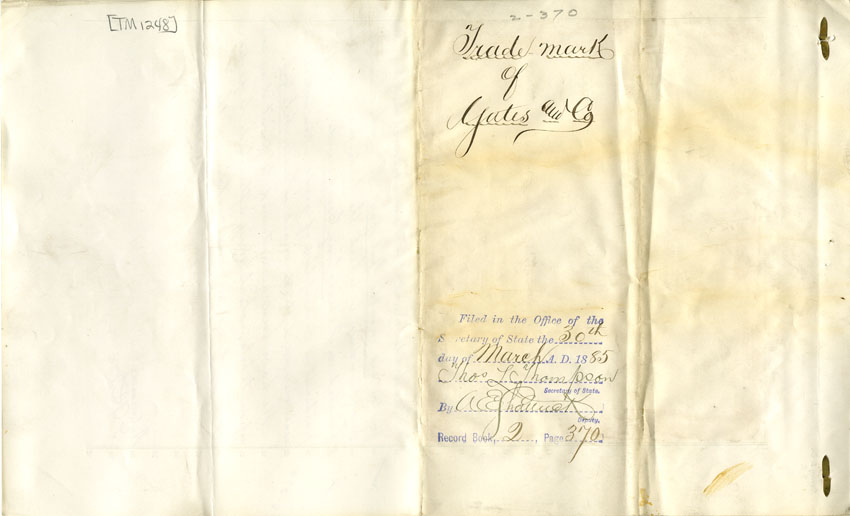 [TM 1248]
2-370
Trade mark
of
Gates and Co
Filed in the Office of the
Secretary of State the 30th
day of March A. D. 1885
Thos L Thompson
Secretary of State.
By A E Shattuck
Deputy.
Record Book, 2, Page 370